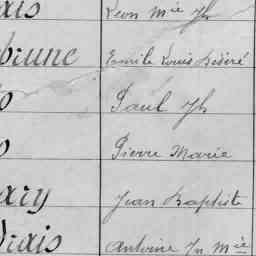 ais Leon Mie Jh
brune Emile Louis Désiré
o Paul Jh
o Pierre Marie
ary Jean Baptiste
vrais Antoine Jn Mie